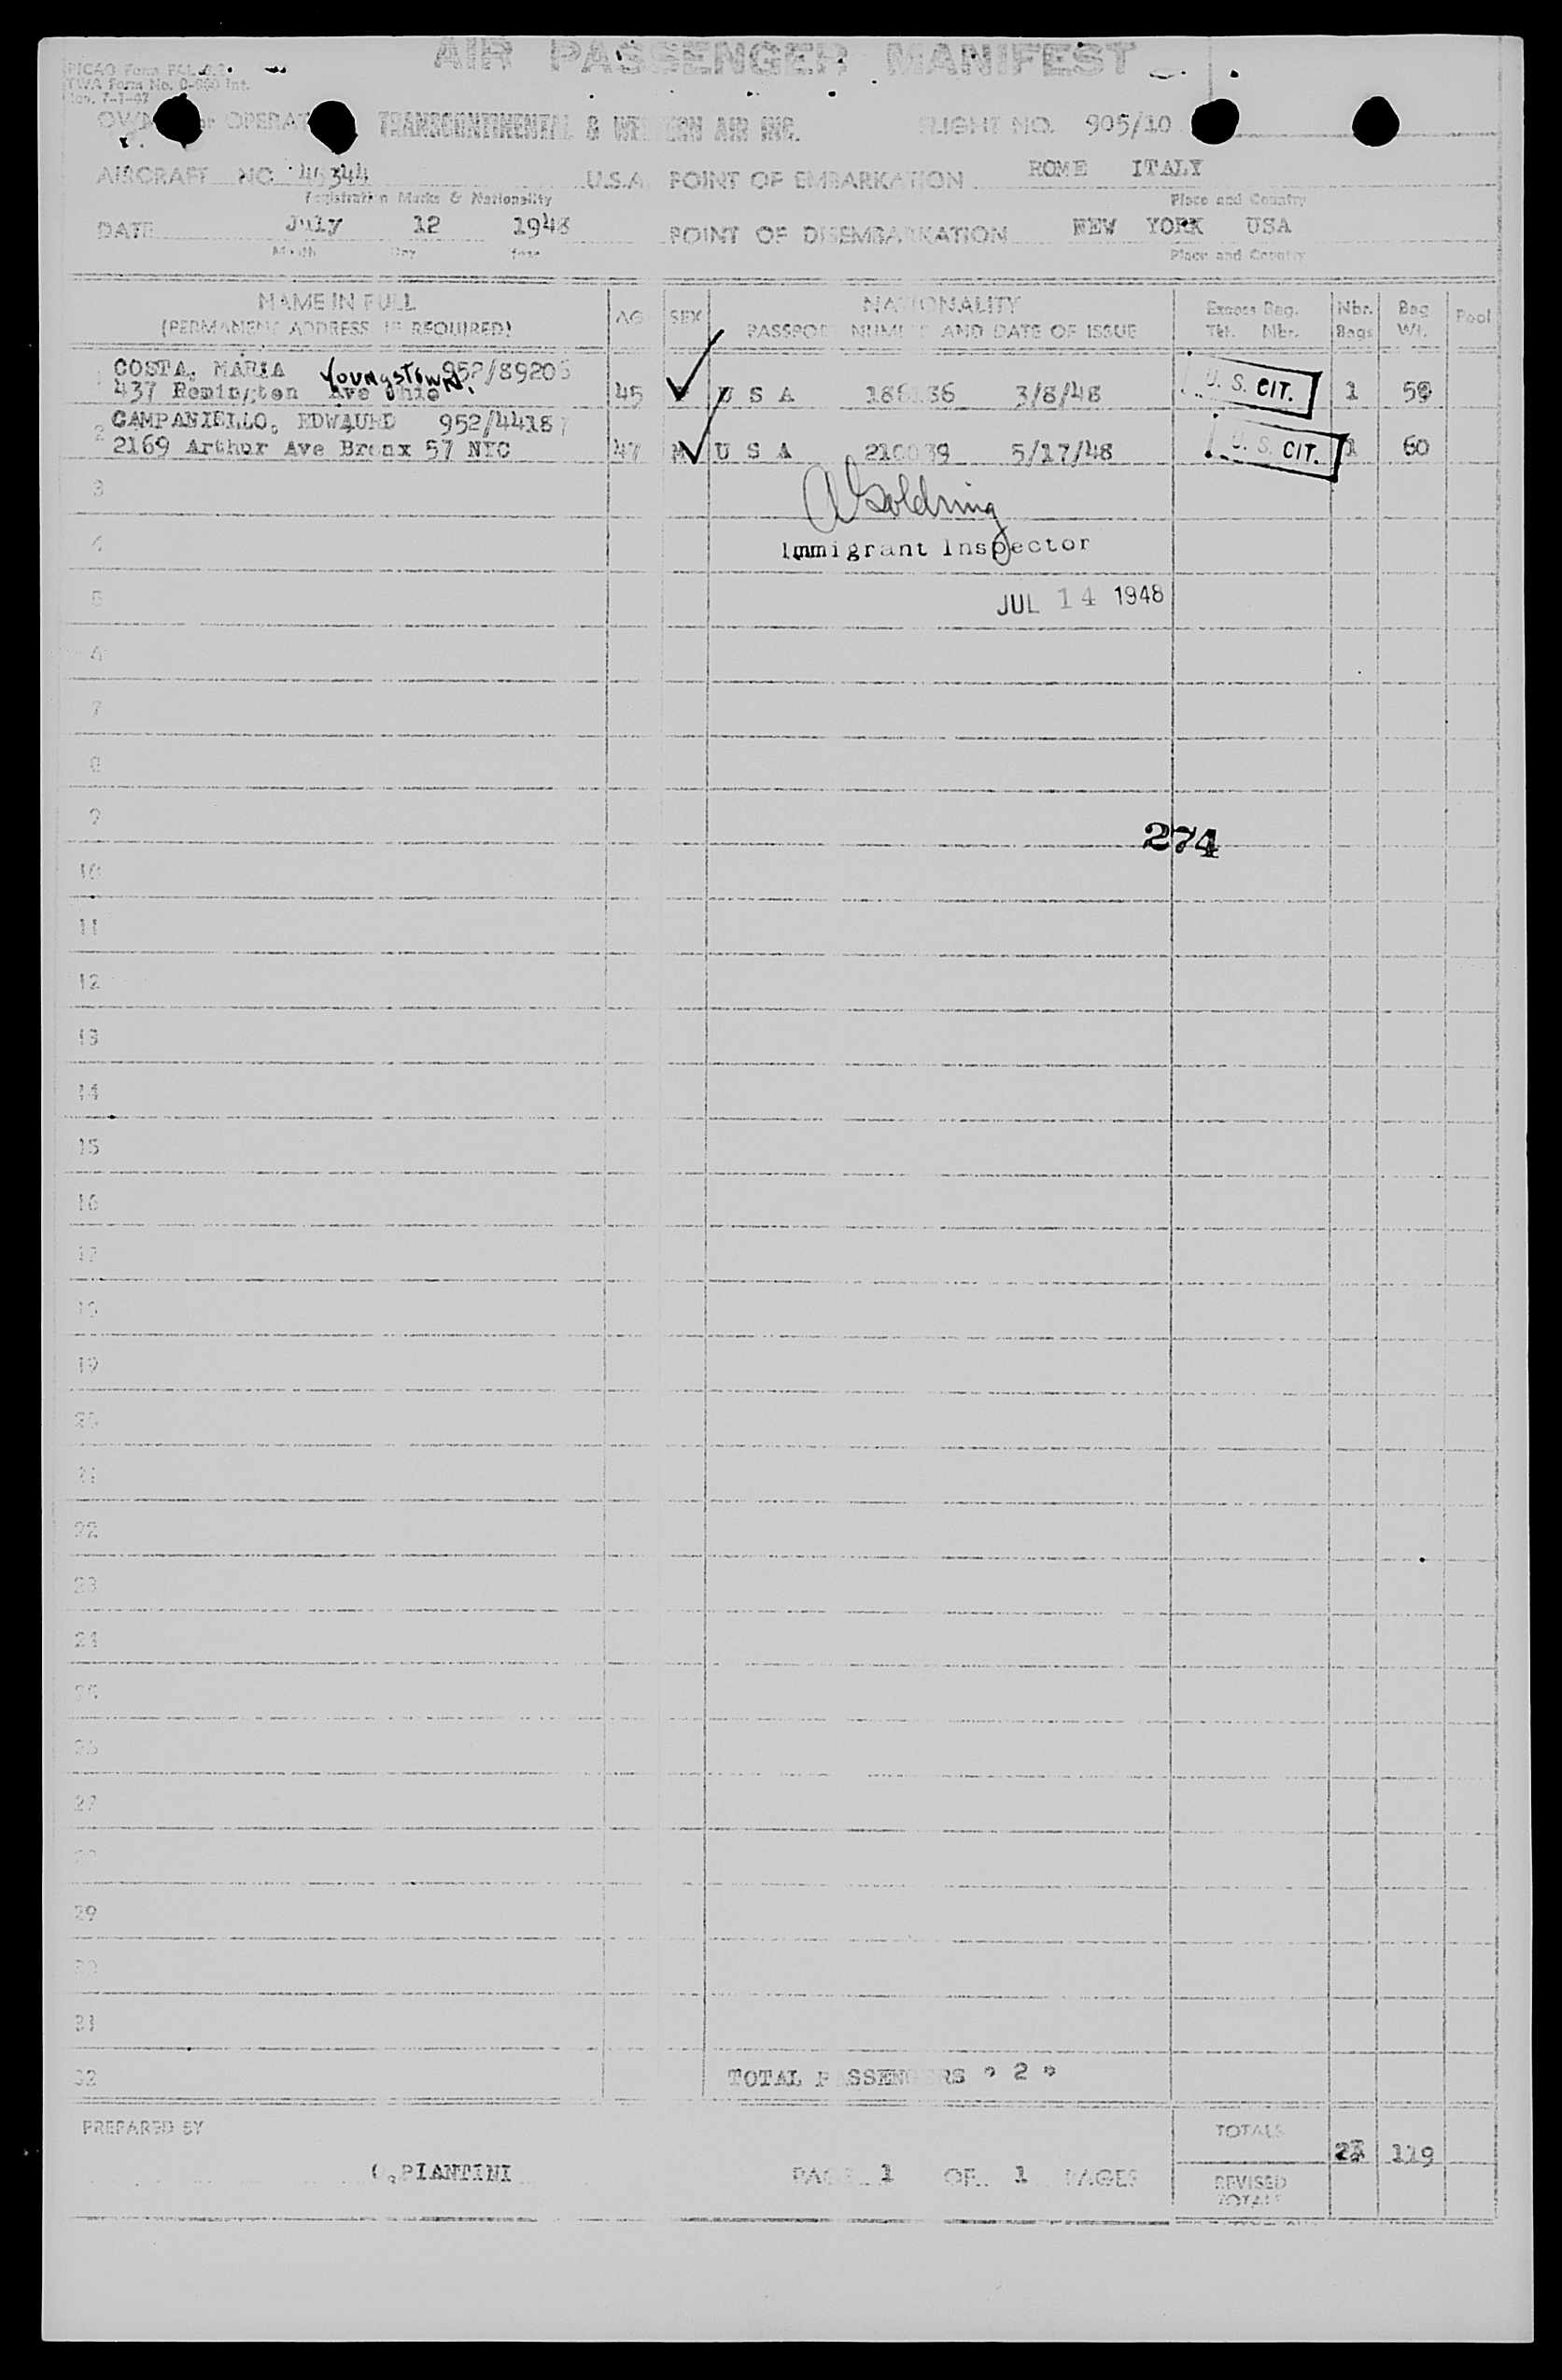 AIR PASSENGER MANIFEST
TWA Form No. Int.
TRANSCONTINENTAL & WESTERN AIR INC. FLIGHT NO. 905/10
AIRCRAFT NO 45344 U.S.A. POINT OF EMBARKATION ROME ITALY
Registration Marks & Nationality Place and Country
DATE July 12 1948 POINT OF DISEMBARKATION NEW YORK USA
Month Day Year Place and Country
NAME IN FULL NATIONALITY Excess Bag. Nbr. Bag Pool
(PERMANENT ADDRESS IF REQUIRED) AGE SEX PASSPORT NUMBER AND DATE OF ISSUE Tkt. Nbr. Bags Wt.
1 COSTA, MARIA 952/89206
437 Remington Ave Youngstown. Ohio 45 U S A 3/8/48 U. S. CIT. 1 59
2 CAMPANIELLO, EDWAURD 952/44187
2169 Arthur Ave Bronx 57 NYC 47 M U S A 5/17/48 U. S. CIT. 1 60
3 A Goldring
4 Immigrant Inspector
5 JUL 14 1948
6
7
8
9 274
10
11
12
13
14
15
16
17
18
19
20
21
22
23
24
25
26
27
28
29
30
31
32 TOTAL PASSENGERS " 2 "
PREPARED BY TOTALS 2 119
PIANTINI PAGE 1 OF 1 PAGES REVISED
TOTALS